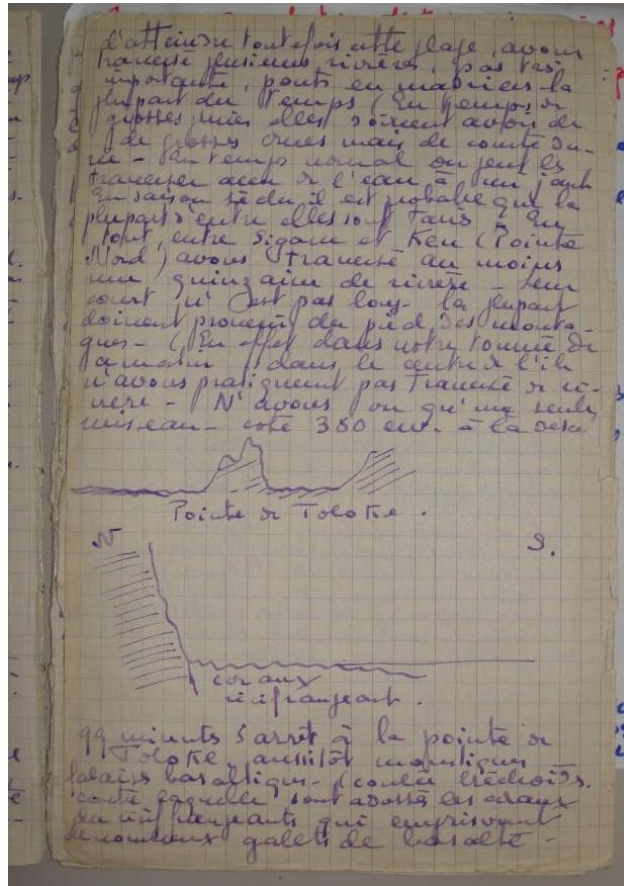 d'atteindre toutefois cette plage, avons
traversé plusieurs rivières, pas très
importante, ponts en madriers la
plupart du temps (En temps de
grosses pluies elles doivent avoir de
de grosses crues mais de courte du-
rée - En temps normal on peut les
traverser avec de l'eau à mi jambe
En saison sèche il est probable que la
plupart d'entre elles sont taris - En
tout, entre Sigave et (Pointe
Nord) avons traversé au moins
une quinzaine de rivière - Leur
court n'est pas long - la plupart
doivent provenir du pied des monta-
gnes - (En effet dans notre tournée de
ce matin dans le centre de l'île
n'avons pratiquement pas traversé de ri-
vière - N'avons vu qu'un seul
ruisseau - coté 380 env. - à la
Pointe de Toloke.
N S.
coraux
récif frangeant.
99 minutes d'arrêt à la pointe de
Toloke, aussitôt magnifiques
falaises basaltiques - (coulée
contre laquelle sont adossés les coraux
du récif frangeants qui emprisonnent
de nombreux galets de basalte -